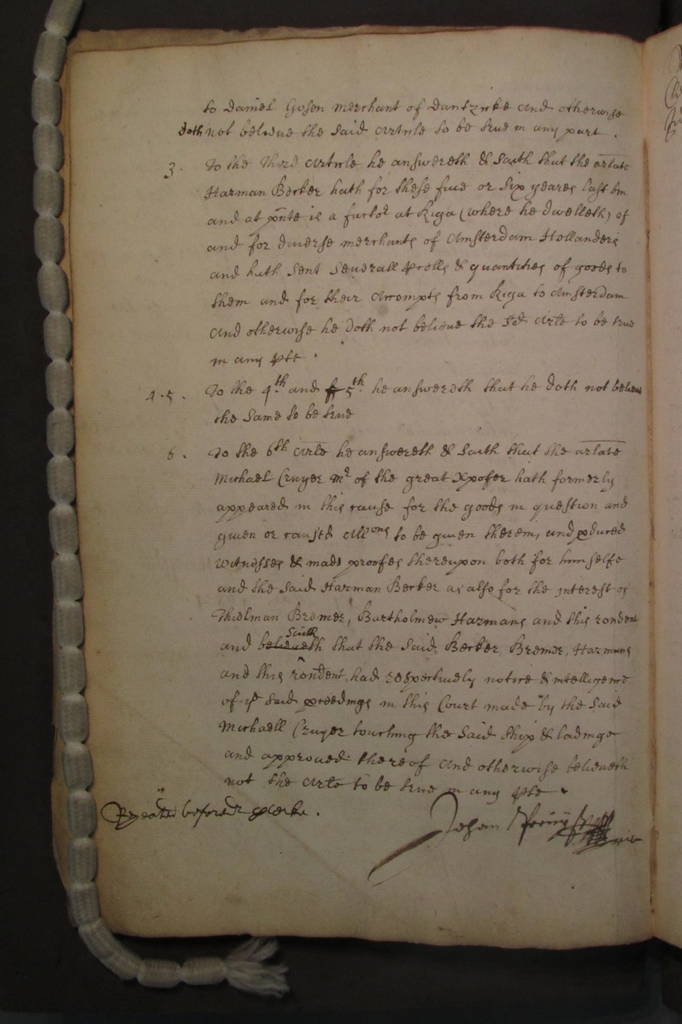 to Daniel Gosen merchant of Dantzicke and otherwise
doth not beleeve the said Article to be true in any part.
3. To the third Article he answereth & saith that the arlate
Harman Becker hath for these five or six yeares last bin
and at pnte is a factor at Riga (where he dwelleth) of
and for diverse merchants of Amsterdam Hollanders
and hath sent severall prcells & quantities of goods to
them and for their Accompts from Riga to Amsterdam
And otherwise he doth not believe the sd Arle to be true
in any pte.
4. 5. To the 4th and 5th. he answereth that he doth not beleeve
the same to be true
6. To the 6th Arle he answereth & saith that the arlate
Michael Cruyer mr of the great Xpofer hath formerly
appeared in this cause for the goods in question and
given or caused Allons to be given therein, and pduced
witnesses & made proofes thereupon both for himselfe
and the said Harman Becker as also for the interest of
Thielman Bremer, Bartholmew Harmans and this rondent
and saith that the said Becker, Bremer, Harmans
and this rondent, had respectively notice & intelligence
of ye said pceedings in this Court made by the said
Michaell Cruyer touching the said ship & ladinge
and approoved thereof And otherwise beleeveth
not the Arle to be true in any pte.
Repeated before Dr Clerke.
Johan